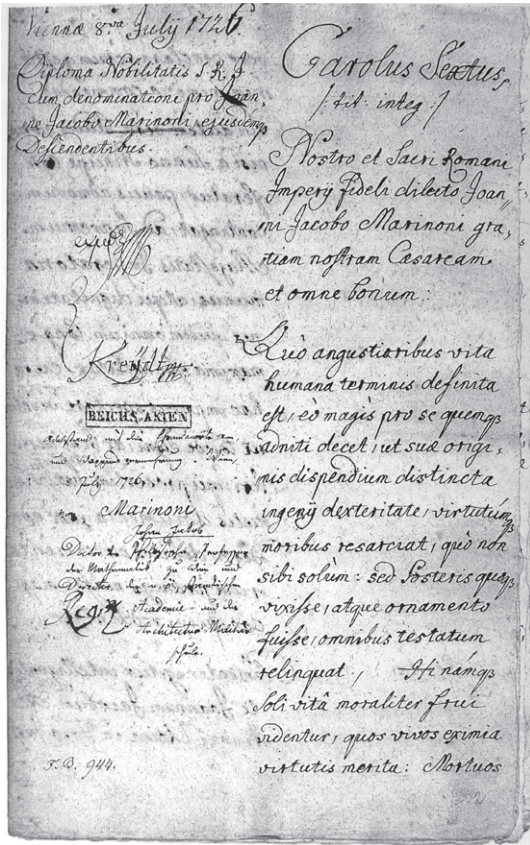 Viennæ 8.va Julij 1726.
Diploma Nobilitatis S. R. J.
cum denominatione pro Joan„
ne Jacobo Marinoni, ejusdemqȝ
Descendentibus.
expedr
Kreÿdl
REICHS-AKTEN
Adelstand mit
und
July 1726
Marinoni
Johan Jakob
Doctor der Philosophie, Professor
der Mathematik zu Wien und
Director der n. ö. ständischen
Academie und der
Architectur-Militär
schule.
Regi
F. B. 944.
Carolus Sextus,
/: tit: integ :/
Nostro et Sacri Romani
Imperÿ fideli dilecto Joan„
ni Jacobo Marinoni gra,
tiam nostram Cæsaream
et omne bonum:
Quò angustioribus vita
humana terminis definita
est, eò magis pro se quemqȝ
adniti decet, ut suæ origi,
nis dispendium distincta
ingenÿ dexteritate, virtutúmqȝ
moribus resarciat, quò non
sibi solum: sed Posteris quoqȝ
vixisse, atque ornamento
fuisse, omnibus testatum
relinquat., Hi námqȝ
soli vitâ moraliter frui
videntur, quos vivos eximia
virtutis merita: Mortuos